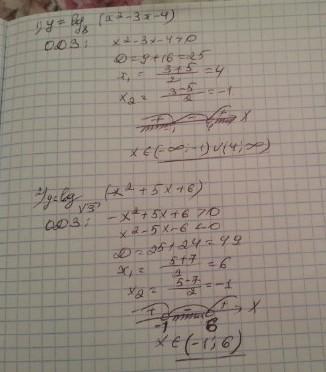 1) y = log₈ (x²-3x-4)
ОДЗ: x²-3x-4>0
D=9+16=25
x₁ = (3+5)/2 = 4
x₂ = (3-5)/2 = -1
+ - + x
x∈(-∞;-1)∪(4;∞)
y=log√3 (x²+5x+6)
ОДЗ: -x²+5x+6>0
x²-5x-6<0
D=25+24=49
x₁ = (5+7)/2 = 6
x₂ = (5-7)/2 = -1
+ - + x
-1 6
x∈(-1;6)